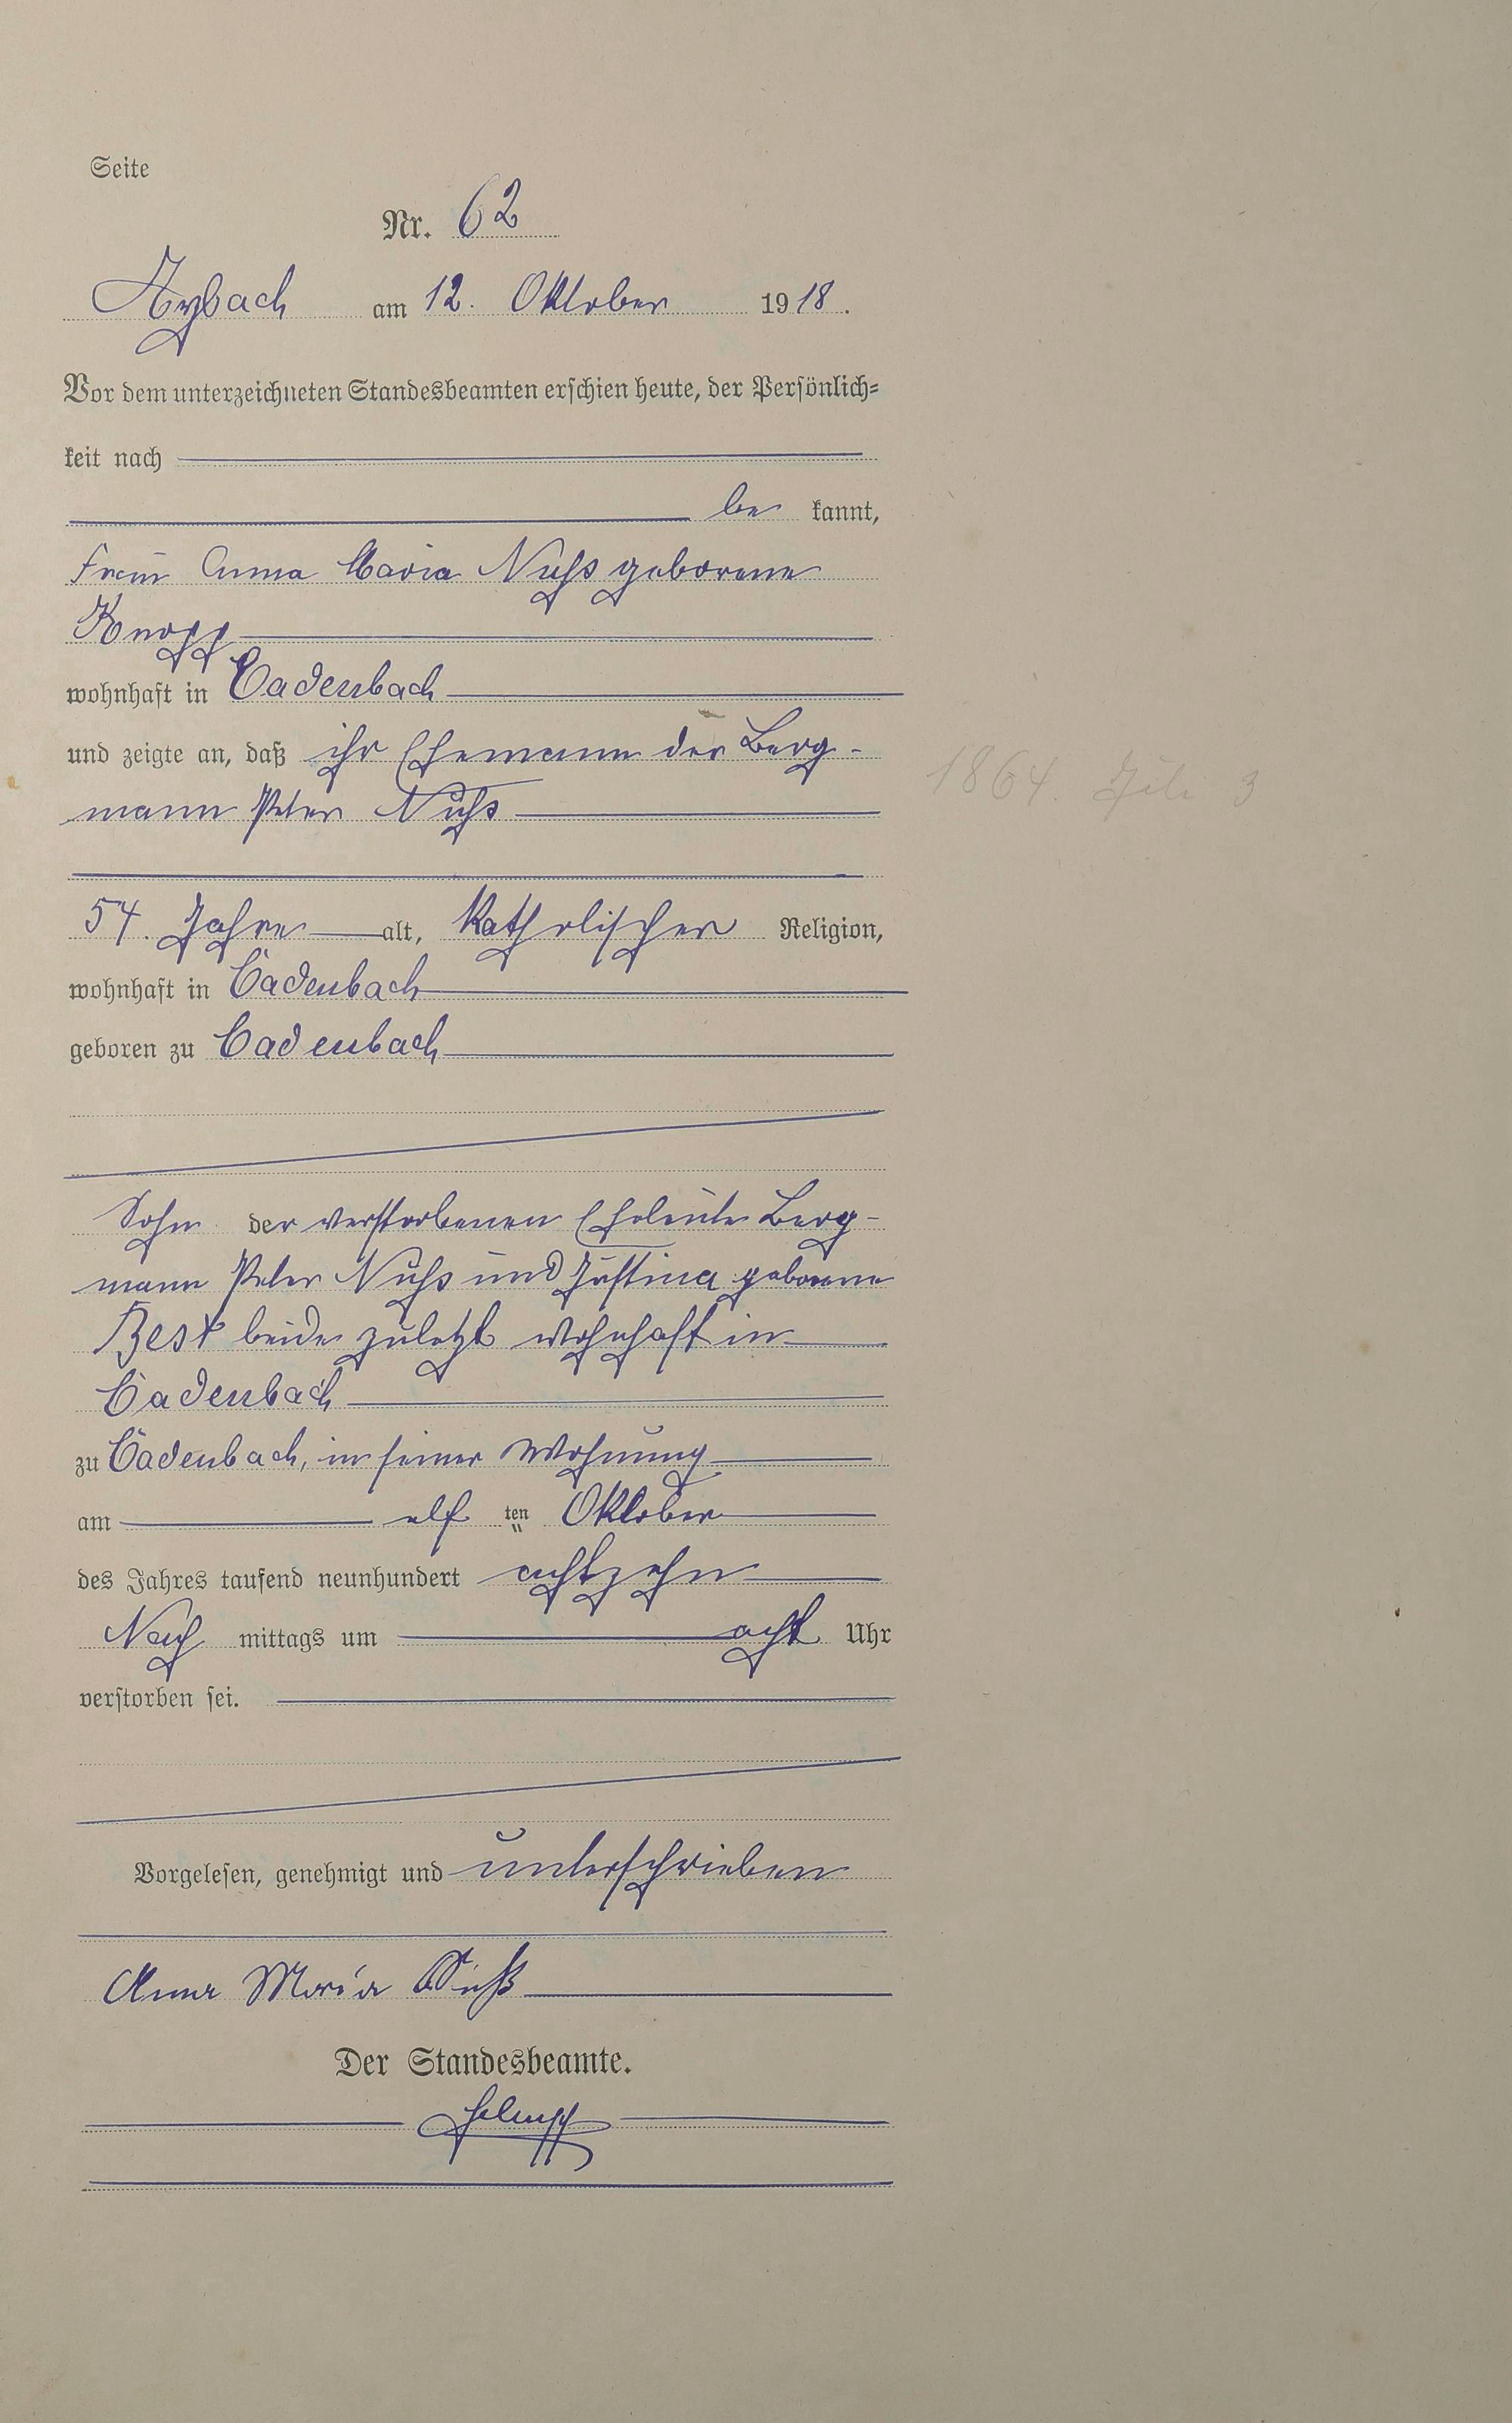 Seite
Nr. 62
Arzbach am 12. Oktober 1918.
Vor dem unterzeichneten Standesbeamten erschien heute, der Persönlich-
keit nach
be kannt,
Frau Anna Maria Nuhs geborene
Knopp
wohnhaft in Cadenbach
und zeigte an, daß ihr Ehemann der Berg-
mann Peter Nuhs
54. Jahre alt, katholischer Religion,
wohnhaft in Cadenbach
geboren zu Cadenbach
Sohn der verstorbenen Eheleute Berg-
mann Peter Nuhs und Justina geborene
Best beide zuletzt wohnhaft in
Cadenbach
zu Cadenbach, in seiner Wohnung
am elf ten Oktober
des Jahres tausend neunhundert achtzehn
Nach mittags um acht Uhr
verstorben sei.
Vorgelesen, genehmigt und unterschrieben
Anna Maria Nuß
Der Standesbeamte.
1864. Juli 3